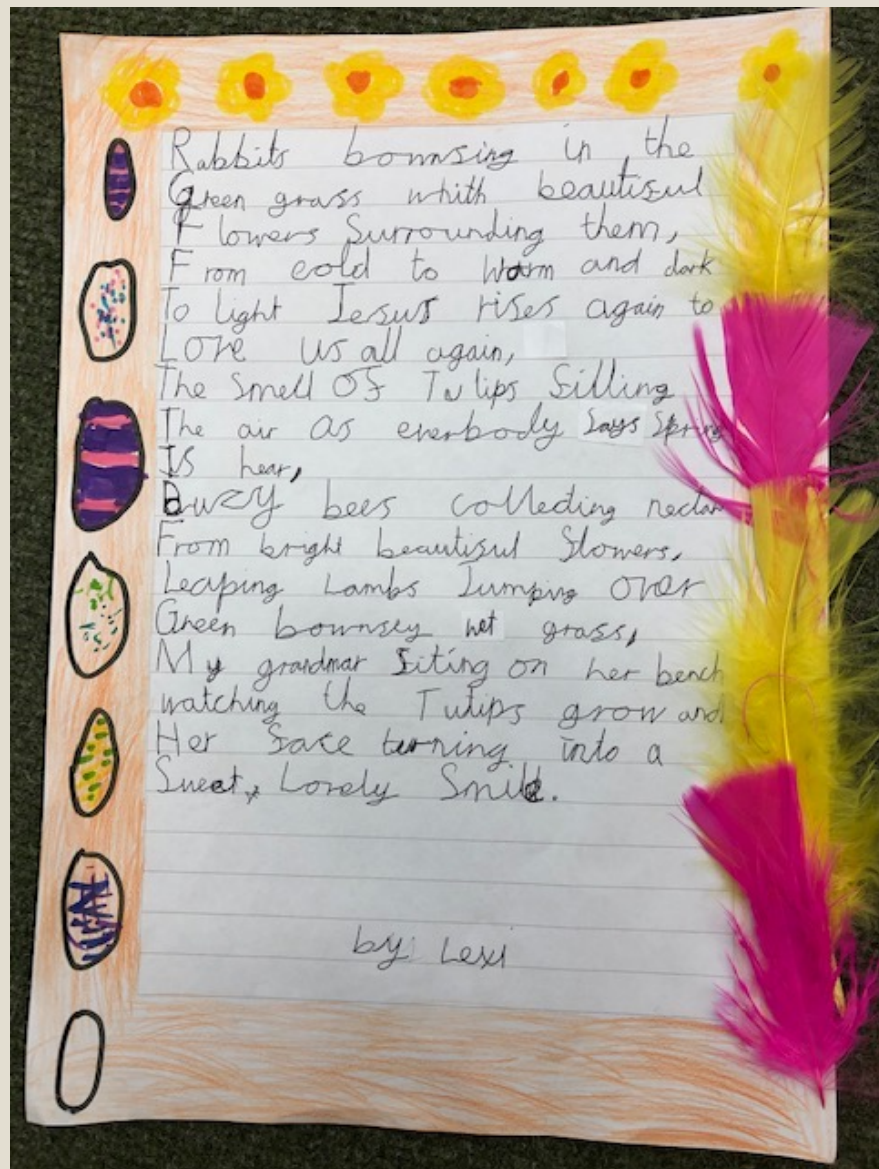 Rabbits bownsing in the
Green grass whith beautiful
Flowers Surrounding them,
From cold to warm and dark
To light Jesus rises again to
Love us all again,
The smell of Tulips filling
The air as everbody Says Spring
Is hear,
Buzy bees collecting nectar
From bright beautiful flowers,
Leaping Lambs Jumping over
Green bownsey wet grass,
My grandmar siting on her bench
watching the Tulips grow and
Her face turning into a
Sweet, Lovely Smile.
by Lexi